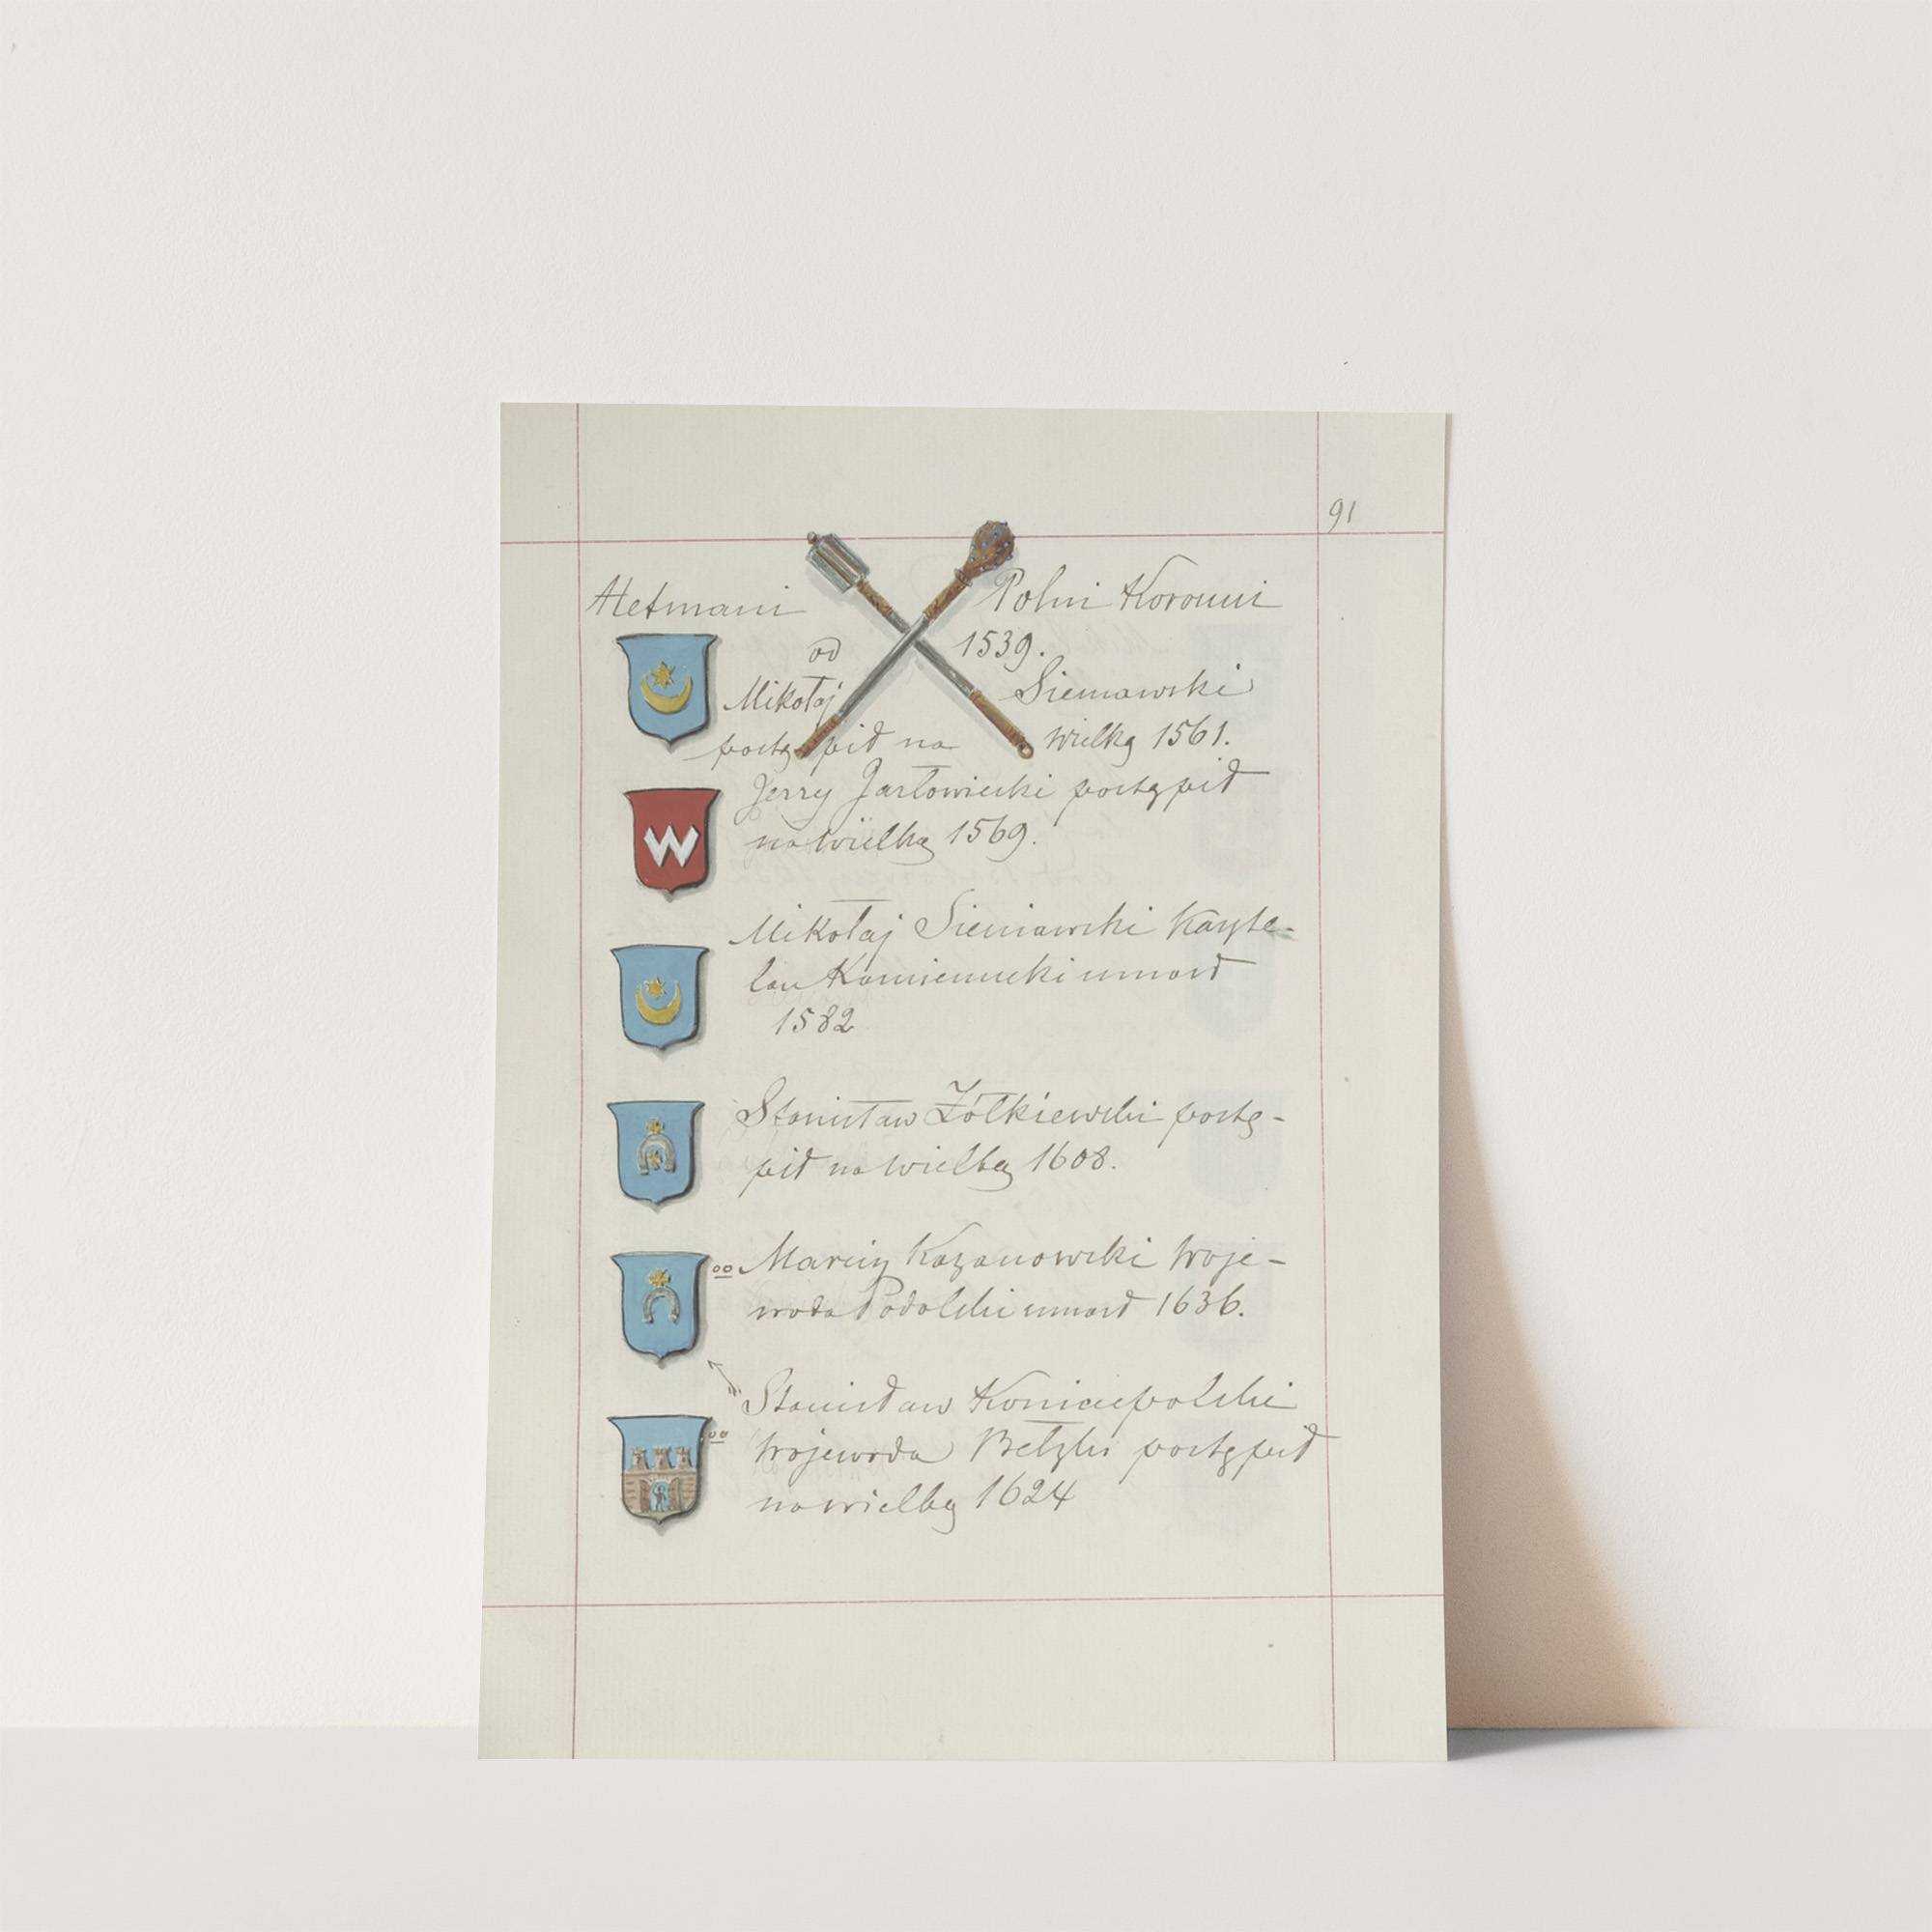 91
Hetmani Polni Koronni
od 1539.
Mikołaj Sieniawski
postąpił na Wielką 1561.
Jerzy Jazłowiecki postąpił
na Wielką 1569.
Mikołaj Sieniawski Kaszte-
lan Kamieniecki umarł
1582
Stanisław Żółkiewski postą-
pił na Wielką 1608.
Marcin Kazanowski Woje-
woda Podolski umarł 1636.
Stanisław Koniecpolski
Wojewoda Bełzki postąpił
na wielką 1624